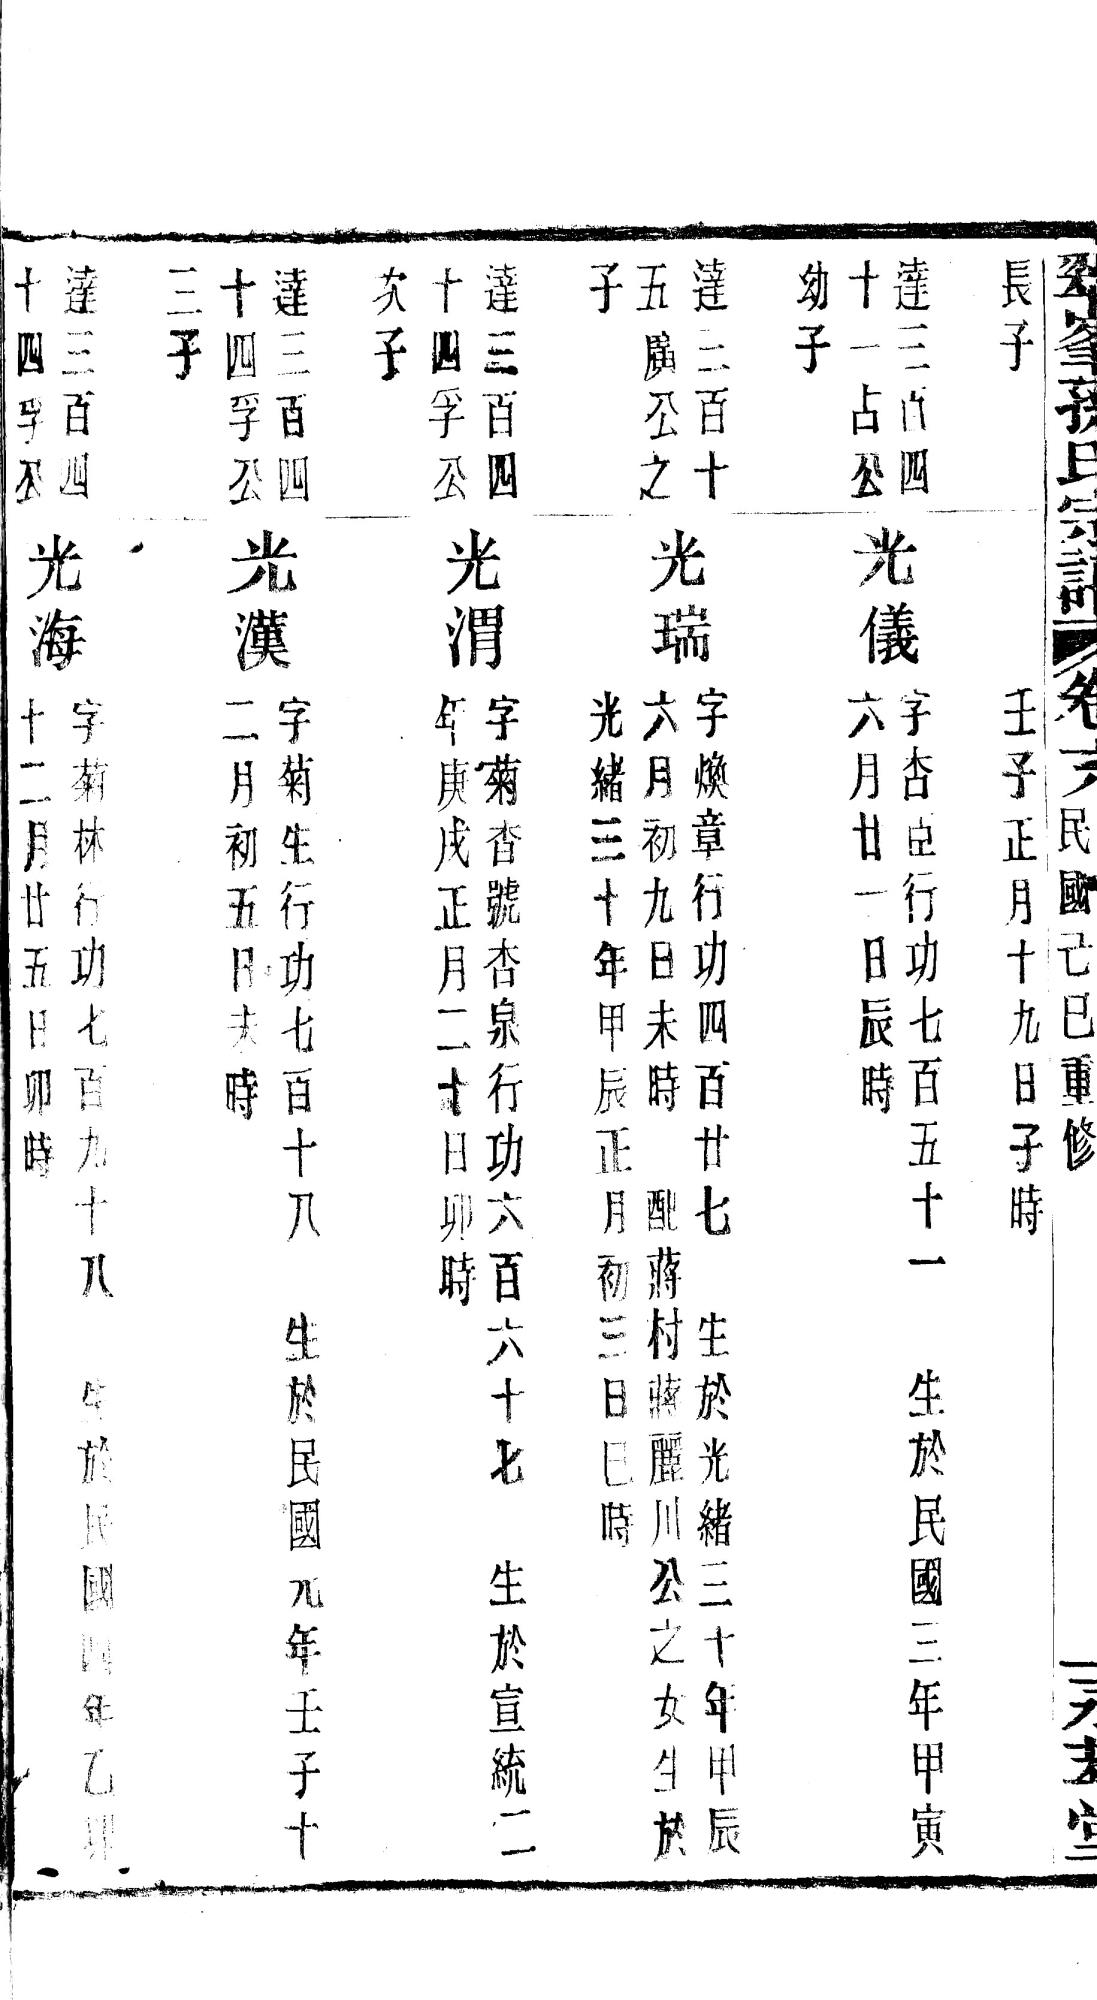 峯孫氏宗譜 卷六 民國己巳重修
長子
壬子正月十九日子時
達三百四
十一占公
幼子
光儀
字杏臣行功七百五十一 生於民國三年甲寅
六月廿一日辰時
達三百十
五廣公之
子
光瑞
字煥章行功四百廿七 生於光緒三十年甲辰
六月初九日未時 配蔣村蔣麗川公之女生於
光緒三十年甲辰正月初三日巳時
達三百四
十四孚公
次子
光渭
字菊杳號杏泉行功六百六十七 生於宣統二
年庚戌正月二十日卯時
達三百四
十四孚公
三子
光漢
字菊生行功七百十八 生於民國元年壬子十
二月初五日未時
達三百四
十四孚公
光海
字菊林行功七百九十八 生於民國四年乙卯
十二月廿五日卯時